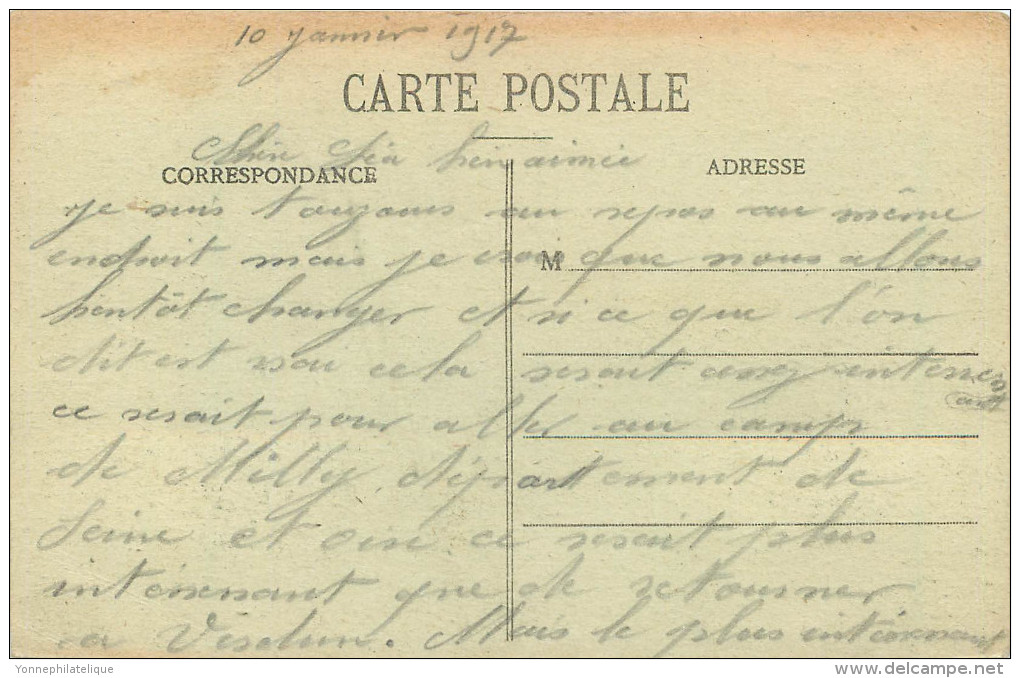 10 janvier 1917
CARTE POSTALE
Chère Léa bien aimée
CORRESPONDANCE
ADRESSE
je suis toujours au repos au même
endroit mais je crois que nous allons
M
bientôt changer et si ce que l'on
dit est vrai cela serait assez interres
ant
ce serait pour aller au camp
de Milly département de
Seine et oise ce serait plus
intéressant que de retourner
a Verdun. Mais le plus intéressant
Yonnephilatelique
delcampe.net